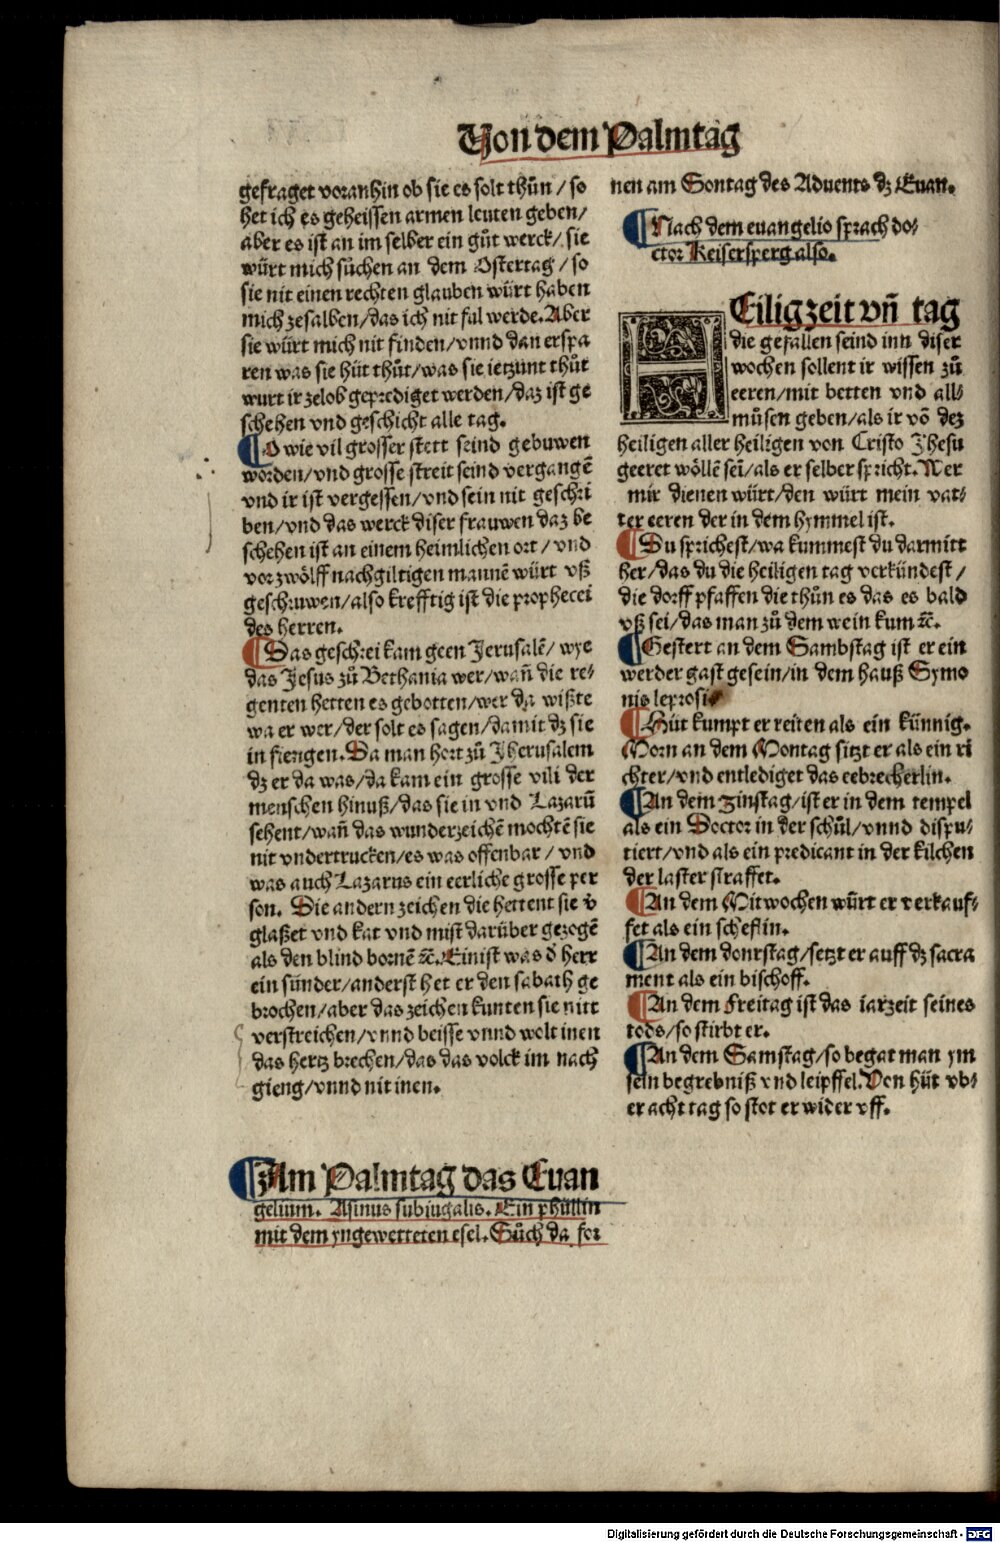 Von dem Palmtag
gefraget voranhin ob sie es solt thůn / so
het ich es geheissen armen leuten geben /
aber es ist an im selber ein gůt werck / sie
würt mich sůchen an dem Ostertag / so
sie nit einen rechten glauben würt haben
mich zesalben / das ich nit ful werde. Aber
sie würt mich nit finden / vnnd dan erspa
ren was sie hüt thůt / was sie ietzunt thůt
wurt ir zelob geprediget werden / daz ist ge
schehen vnd geschicht alle tag.
¶ O wie vil grosser stett seind gebuwen
worden / vnd grosse streit seind vergangē
vnd ir ist vergessen / vnd sein nit geschri
ben / vnd das werck diser frauwen daz be
schehen ist an einem heimlichen ort / vnd
vor zwölff nachgiltigen mannē würt vß
geschruwen / also krefftig ist die propheceí
des herren.
¶ Das geschrei kam geen Jerusalē / wye
das Jesus zů Bethania wer / wañ die re-
genten hetten es gebotten / wer da wißte
wa er wer / der solt es sagen / damit dz sie
in fiengen. Da man hort zů Jherusalem
dz er da was / da kam ein grosse vili der
menschen hinuß / das sie in vnd Lazarū
sehent / wañ das wunderzeichē mochtē sie
nit vndertrucken / es was offenbar / vnd
was auch Lazarus ein eerliche grosse per
son. Die andern zeichen die hettent sie v
glaßet vnd kat vnd mist darüber gezogē
als den blind bornē ꝛc̄. Einist was d̄ herr
ein sünder / anderst het er den sabath ge
brochen / aber das zeichen kunten sie nitt
verstreichen / vnnd beisse vnnd wolt inen
das hertz brechen / das das volck im nach
gieng / vnnd nit inen.
¶ Am Palmtag das Euan
gelium. Asinus subiugalis. Ein phüllin
mit dem yngewetteten esel. Sůch da for
nen am Sontag des Aduents dz Euan.
¶ Nach dem euangelio sprach do-
ctor Keisersperg also.
HEilig zeit vñ tag
die gefallen seind inn diser
wochen sollent ir wissen zů
eeren / mit betten vnd all-
můsen geben / als ir vō dez
heiligen aller heiligen von Cristo Jhesu
geeret wöllē seī / als er selber spricht. Wer
mir dienen würt / den würt mein vat-
ter eeren der in dem hymmel ist.
¶ Du sprichest / wa kummest du darmitt
her / das du die heiligen tag verkündest /
die dorff pfaffen die thůn es das es bald
vß sei / das man zů dem wein kum ꝛc̄.
¶ Gestert an dem Sambstag ist er ein
werder gast gesein / in dem hauß Symo
nis leprosi
¶ Hüt kumpt er reiten als ein künnig.
Morn an dem Montag sitzt er als ein ri
chter / vnd entlediget das eebrecherlin.
¶ An dem zinstag / ist er in dem tempel
als ein Doctor in der schůl / vnnd dispu-
tiert / vnd als ein predicant in der kilchen
der laster straffet.
¶ An dem Mitwochen würt er verkauf-
fet als ein scheflin.
¶ An dem donrstag / setzt er auff dz sacra
ment als ein bischoff.
¶ An dem freitag ist das iarzeit seines
tods / so stirbt er.
¶ An dem Samstag / so begat man ym
sein begrebniß vnd leipffel. Von hüt vb-
er acht tag so stot er wider vff.
Digitalisierung gefördert durch die Deutsche Forschungsgemeinschaft - DFG